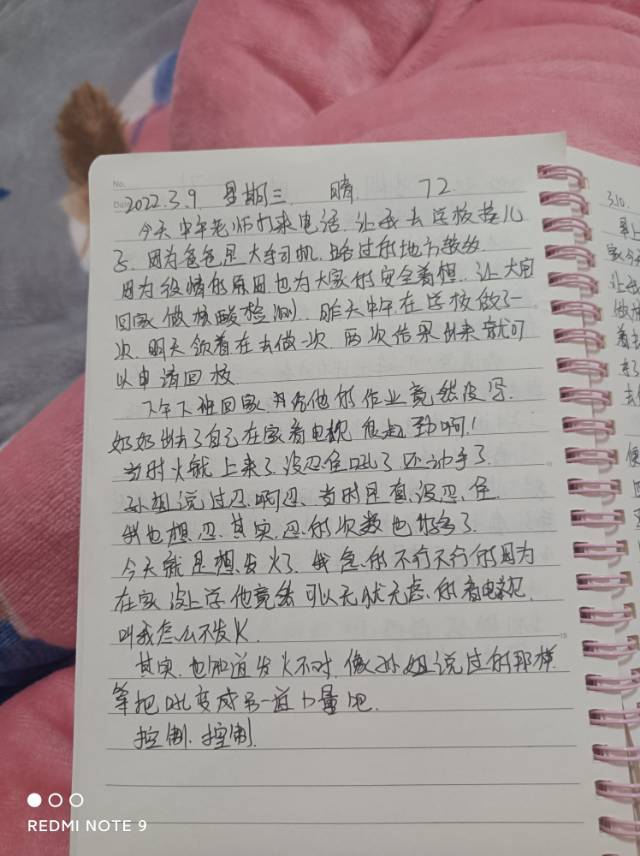 No.
2022.3.9 星期三 晴 72
今天中午老师打来电话.让我去学校接儿
子.因为爸爸是大车司机.路过的地方较多
因为疫情的原因也为大家的安全着想.让大宝
回家做核酸检测.昨天中午在学校做了一
次.明天领着在去做一次.两次结果出来就可
以申请回校
下午下班回家并看他的作业竟然没写.
奶奶出去了自己在家看电视.很起劲啊!
当时火就上来了.没忍住吼了还动手了
孙姐说过忍.啊忍、当时是真没忍住
我也想忍.其实忍的次数也够多了
今天就是想发火了.我急的不行不行的因为
在家没上学他竟然可以无忧无虑的看电视.
叫我怎么不发火
其实也知道发火不对.像孙姐说过的那样
等把吼变成另一道力量吧.
控制.控制.
3.10.
REDMI NOTE 9